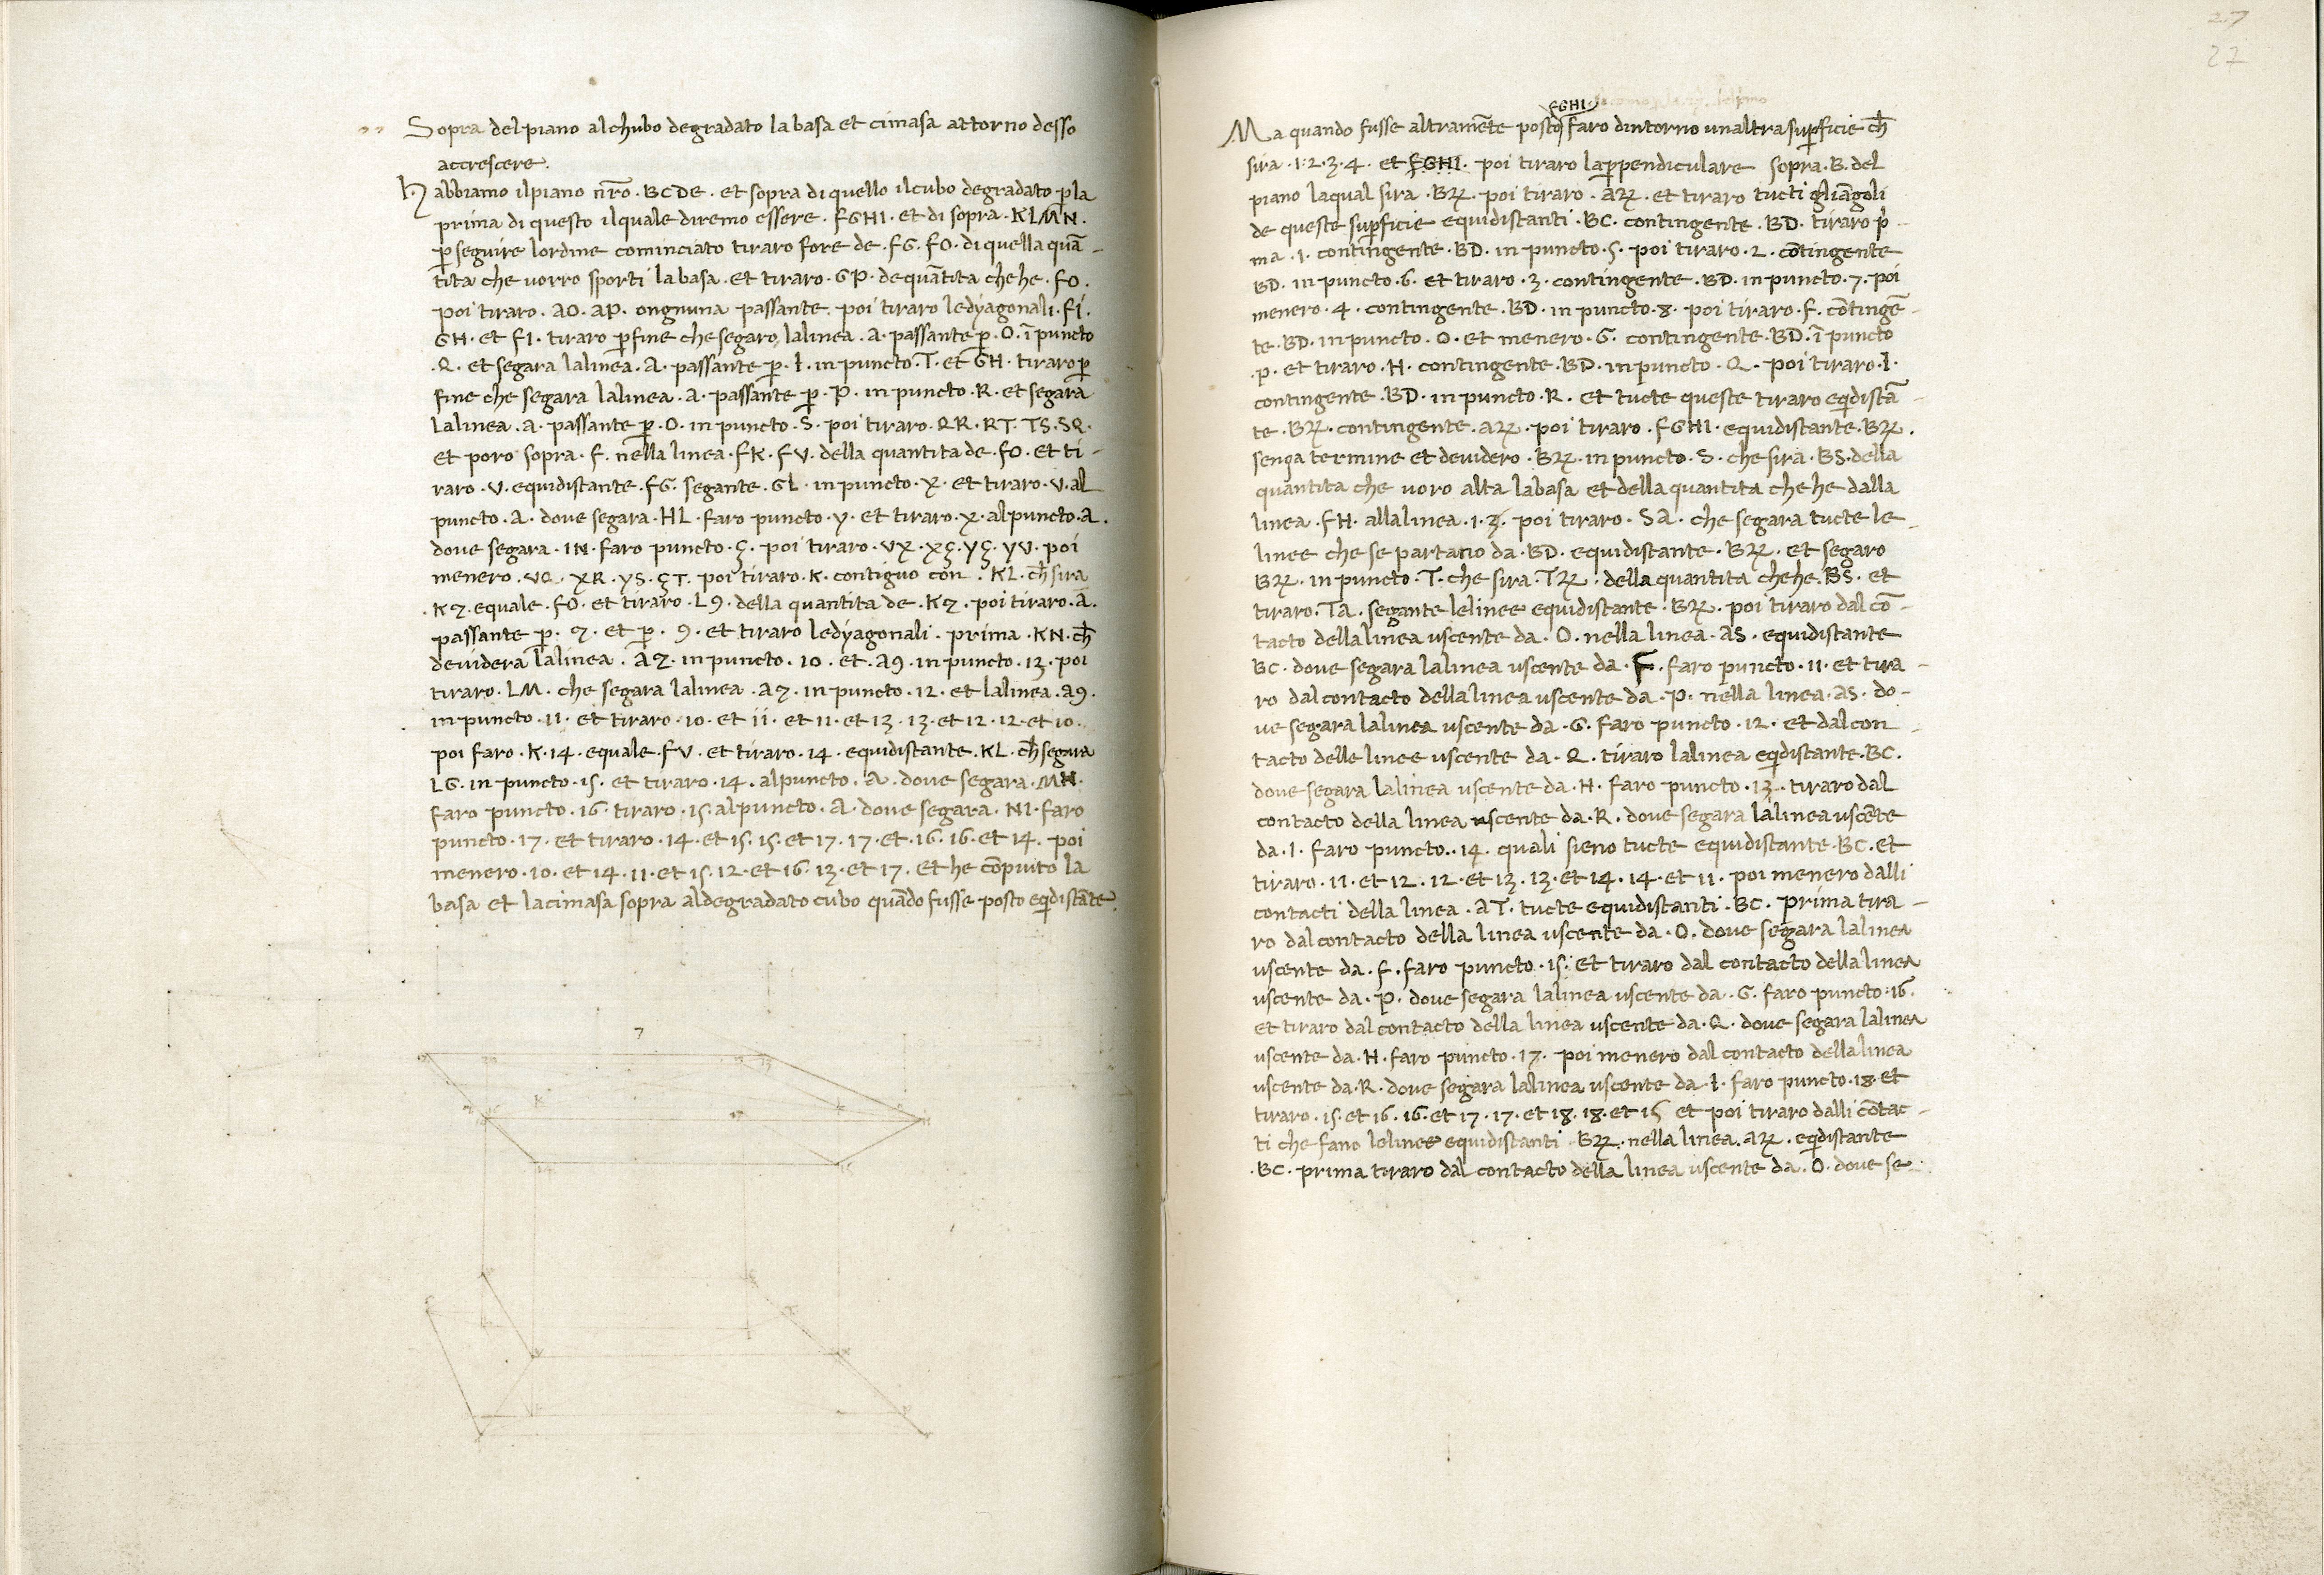 Sopra del piano al chubo degradato la basa et cimasa attorno desso
accrescere.
Habbiamo il piano nr̄o .BCDE. et sopra di quello il cubo degradato p̱ la
prima di questo il quale diremo essere .FGHI. et di sopra .KLMN.
p̱ seguire lordine cominciato tiraro fore de .FG. FO. di quella quā-
tita che vorro sporti la basa .et tiraro .GP. de quātita che he .FO.
poi tiraro .AO. AP. ongnuna passante poi tiraro le dyagonali .FI.
GH. et FI. tiraro p̱ fine che segaro lalinea .A. passante p̱ .O. ī puncto
.Q. et segara lalinea .A. passante p̱ .I. in puncto .T. et GH. tiraro p̱
fine che segara lalinea .A. passante p̱ .P. in puncto .R. et segara
lalinea .A. passante p̱ .O. in puncto .S. poi tiraro .QR. RT. TS. SQ.
et poro sopra .F. nella linea .FK. FV. della quantita de .FO. et ti-
raro .V. equidistante .FG. segante .GL. in puncto .X. et tiraro .V. al
puncto .A. dove segara .HL. faro puncto .y. et tiraro .X. al puncto .A.
dove segara .IN. faro puncto .ç. poi tiraro .VX. Xç. yç. yV. poi
menero .VQ. XR. yS. çT. poi tiraro .K. contiguo con .KL. ch̄ sira
.K7. equale .FO. et tiraro .L9. della quantita de .K7. poi tiraro .A.
passante p̱ .7. et p̱ .9. et tiraro le dyagonali . prima .KN. ch̄
devidera lalinea .A7. in puncto .10. et .A9. in puncto .13. poi
tiraro .LM. che segara lalinea .A7. in puncto .12. et lalinea .A9.
in puncto .11. et tiraro .10. et 11. et 11. et 13. 13. et 12. 12. et 10.
poi faro .K.14. equale .FV. et tiraro .14. equidistante .KL. ch̄ segara
LG. in puncto .15. et tiraro .14. al puncto .A. dove segara .MN.
faro puncto .16. tiraro .15. al puncto .A. dove segara .NI. faro
puncto .17. et tiraro .14. et 15. 15. et 17. 17. et .16. 16. et 14. poi
menero .10. et 14. 11. et 15. 12. et 16. 13. et 17. et he cōpiuto la
basa et la cimasa sopra al degradato cubo quādo fusse posto eq̱distāte.
7
27
22
FGHI
Ma quando fusse altramēte posto faro dintorno unaltra sup̱ficie ch̄
sira .1.2.3.4. et FGHI. poi tiraro la p̱pendiculare sopra .B. del
piano laqual sira .BꝜ. poi tiraro .AꝜ. et tiraro tucti gliāgoli
de queste sup̱ficie equidistanti .BC. contingente .BD. tiraro p̄-
ma .1. contingente .BD. in puncto .5. poi tiraro .2. cōtingente
BD. in puncto .6. et tiraro .3. contingente .BD. in puncto .7. poi
menero .4. contingente .BD. in puncto .8. poi tiraro .F. cōtingē-
te .BD. in puncto .O. et menero .G. contingente .BD. ī puncto
.P. et tiraro .H. contingente .BD. in puncto .Q. poi tiraro .I.
contingente .BD. in puncto .R. et tucte queste tiraro eq̱distā-
te .BꝜ. contingente .AꝜ. poi tiraro .FGHI. equidistante .BꝜ.
senza termine et devidero .BꝜ. in puncto .S. che sira .BS. della
quantita che voro alta la basa et della quantita che he dalla
linea .FH. alla linea .1.3. poi tiraro .SA. che segara tucte le
linee che se partano da .BD. equidistante .BꝜ. et segaro
BꝜ. in puncto .T. che sira .TꝜ. della quantita che he .BS. et
tiraro .TA. segante le linee equidistante .BꝜ. poi tiraro dal cō-
tacto della linea uscente da .O. nella linea .AS. equidistante
BC. dove segara lalinea uscente da .F. faro puncto .11. et tira-
ro dal contacto della linea uscente da .P. nella linea .AS. do-
ve segara lalinea uscente da .G. faro puncto .12. et dal con-
tacto delle linee uscente da .Q. tiraro lalinea eq̱distante .BC.
dove segara lalinea uscente da .H. faro puncto .13. tiraro dal
contacto della linea uscente da .R. dove segara lalinea uscēte
da .I. faro puncto ..14. quali sieno tucte equidistante .BC. et
tiraro .11. et 12. 12. et 13. 13. et 14. 14. et 11. poi menero dalli
contacti della linea .AT. tucte equidistanti .BC. prima tira-
ro dal contacto della linea uscente da .O. dove segara lalinea
uscente da .F. faro puncto .15. et tiraro dal contacto della linea
uscente da .P. dove segara lalinea uscente da .G. faro puncto .16.
et tiraro dal contacto della linea uscente da .Q. dove segara lalinea
uscente da .H. faro puncto .17. poi menero dal contacto della linea
uscente da .R. dove segara lalinea uscente da .I. faro puncto .18. et
tiraro .15. et 16. 16. et 17. 17. et 18. 18. et 15 et poi tiraro dalli cōtac-
ti che fano le linee equidistanti .BꝜ. nella linea .AꝜ. eq̱distante
.BC. prima tiraro dal contacto della linea uscente da .O. dove se-